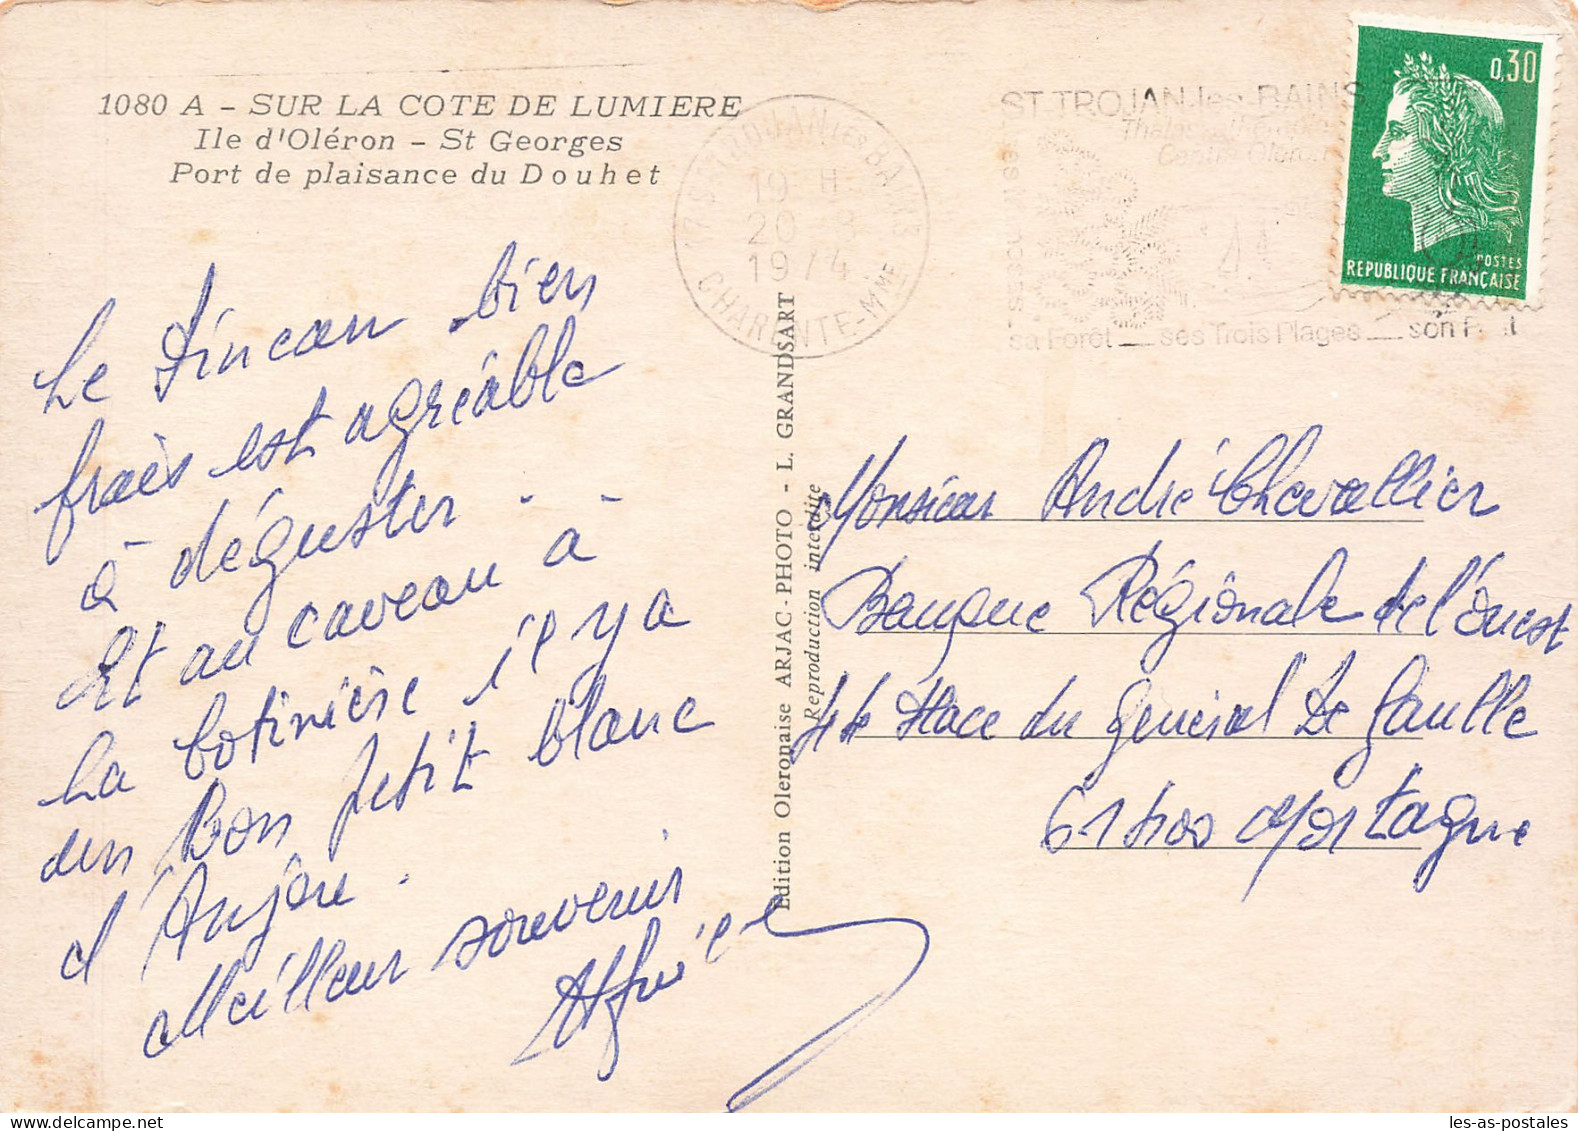 1080 A - SUR LA COTE DE LUMIERE
Ile d'Oléron - St Georges
Port de plaisance du Douhet
Le Pineau bien
frais est agréable
à déguster .
Et au caveau à
la Cotinière il y a
un Bon petit blanc
d'Anjou .
Meilleur souvenir
Edition Oleronaise ARJAC-PHOTO - L. GRANDSART
Reproduction interdite
17 ST TROJAN LES BAINS
19 H
20
1974
CHARENTE-MME
ST TROJAN-les-BAINS
sa Forêt __ ses Trois Plages __ son Port
0,30
POSTES
REPUBLIQUE FRANÇAISE
Monsieur André Chevallier
Banque Régionale de l'Ouest
44 Place du Général De Gaulle
61400 Mortagne
les-as-postales
delcampe.net